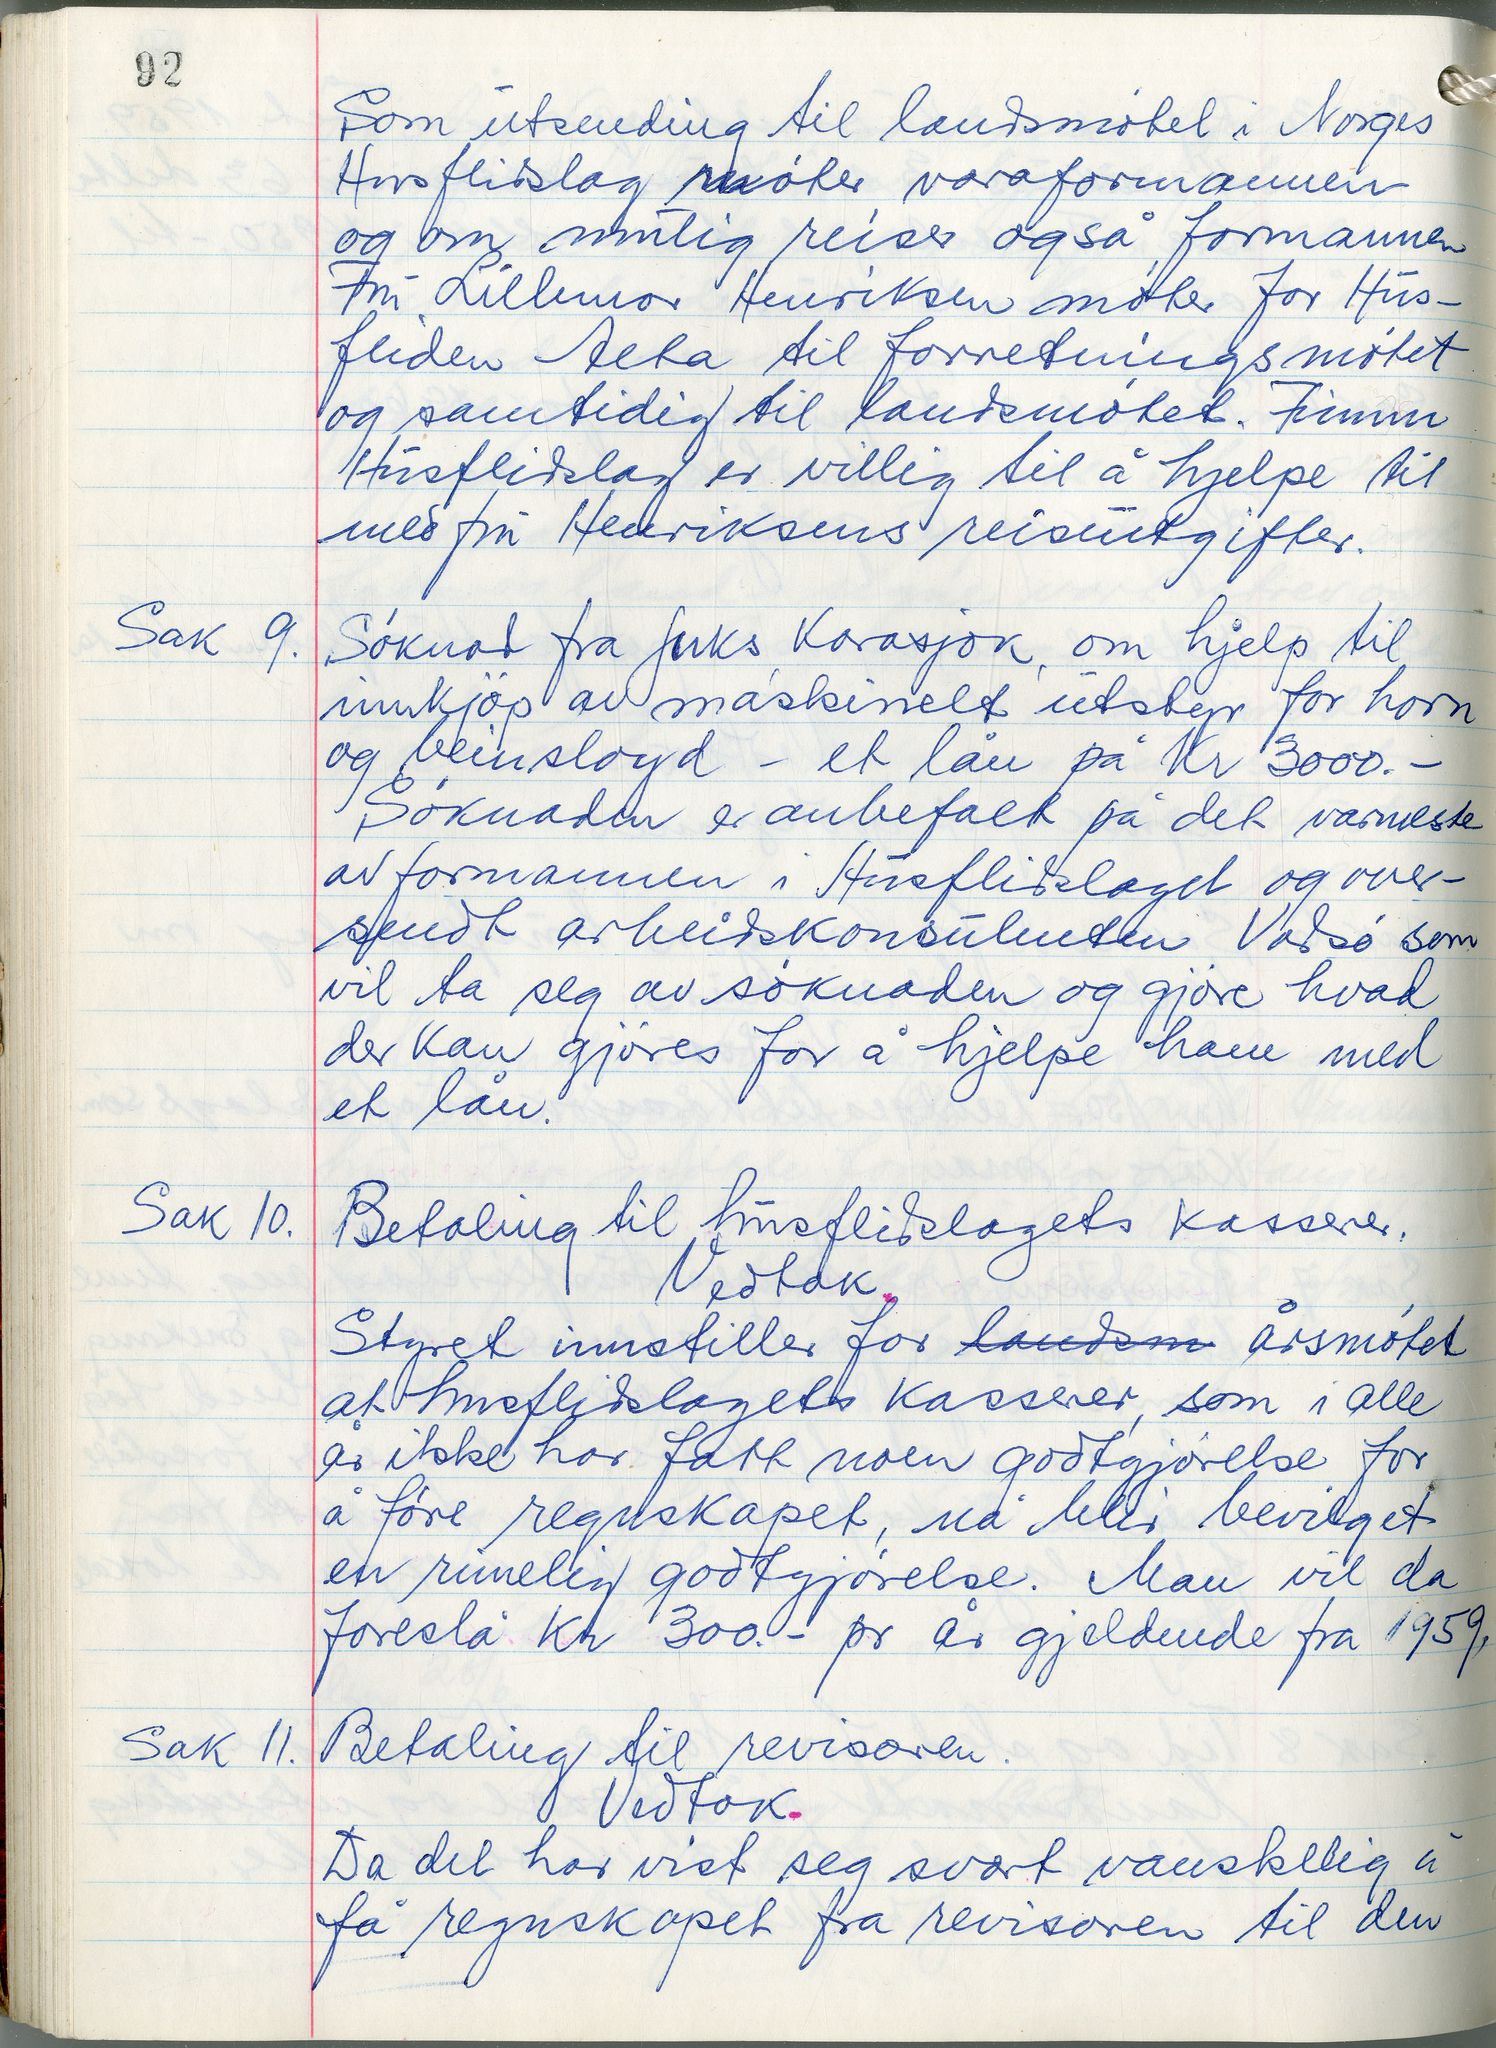 92
Som utsending til landsmötet i Norges
Husflidslag möter varaformannen
og om mulig reiser også formannen
Fru Lillemor Henriksen möter for Hus-
fliden Alta til forretningsmötet
og samtidig til landsmötet. Finnm
Husflidslag er villig til å hjelpe til
med fru Henriksens reiseutgifter.
Sak 9. Söknad fra Juks Karasjok, om hjelp til
innkjöp av maskinelt utstyr for horn
og beinslöyd - et lån på Kr 3000.-
Söknaden er anbefalt på det varmeste
av formannen i Husflidslaget og over-
sendt arbeidskonsulenten Vadsö som
vil ta seg av söknaden og gjöre hvad
der kan gjöres for å hjelpe ham med
et lån.
Sak 10. Betaling til husflidslagets kasserer.
Vedtak.
Styret innstiller for landsm årsmötet
at husflidslagets kasserer, som i alle
år ikke har fått noen godtgjörelse for
å före regnskapet, nå blir bevilget
en rimelig godtgjörelse. Man vil da
foreslå Kr 300.- pr år gjeldende fra 1959.
Sak 11. Betaling til revisoren.
Vedtak.
Da det har vist seg svært vanskelig å
få regnskapet fra revisoren til den